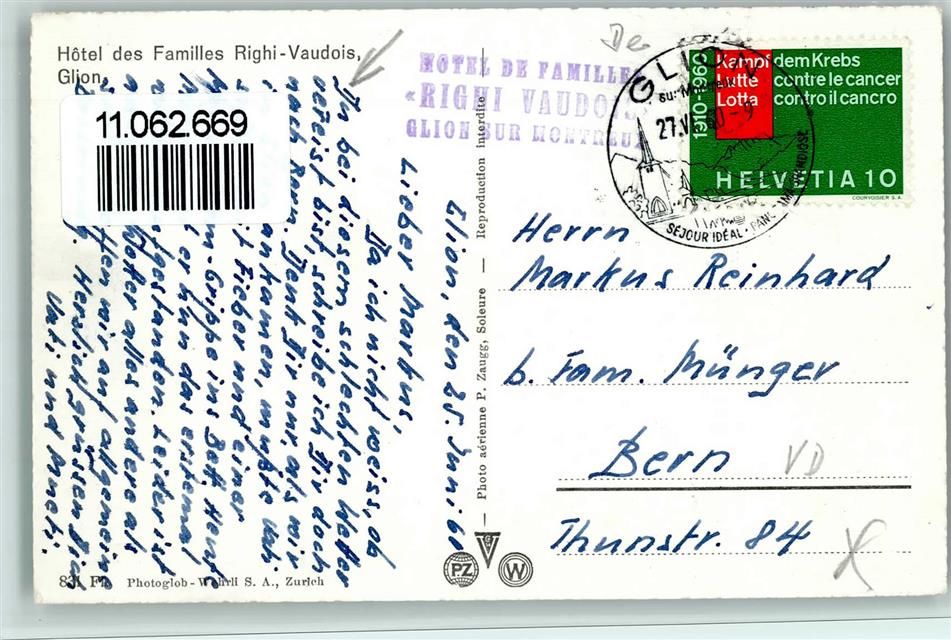 Hôtel des Familles Righi-Vaudois,
Glion
11.062.669
HOTEL DE FAMILLE
«RIGHI VAUDOIS
GLION SUR MONTREUX
De
GLION
sur Montreux
27.VI.60-9
SEJOUR IDÉAL-PANORAMA GRANDIOSE
1910-1960
Kampf dem Krebs
Lutte contre le cancer
Lotta contro il cancro
HELVETIA 10
COURVOISIER S.A.
Glion, den 25. Juni 60
Lieber Markus,
Da ich nicht weiss ob
Du bei diesem schlechten Wetter
verreist bist, schreibe ich Dir doch
nach Bern. Denk Dir nur, als wir
ankamen, musste Vati
mit Fieber und einer
-Grippe ins Bett. Heute
ist er nun das erstemal
aufgestanden. Leider ist
das Wetter alles andere als
wir auf allgemeine
Herzlich grüssen Dich
Vati und Mueti.
Photo aérienne P. Zaugg, Soleure — Reproduction interdite
Herrn
Markus Reinhard
b. Fam. Münger
Bern
VD
Thunstr. 84
PZ
W
Photoglob-Wehrli S. A., Zurich